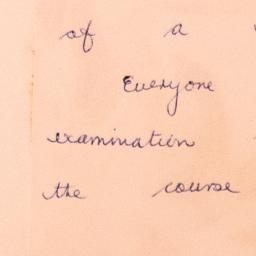 of a
Everyone
examination
the course